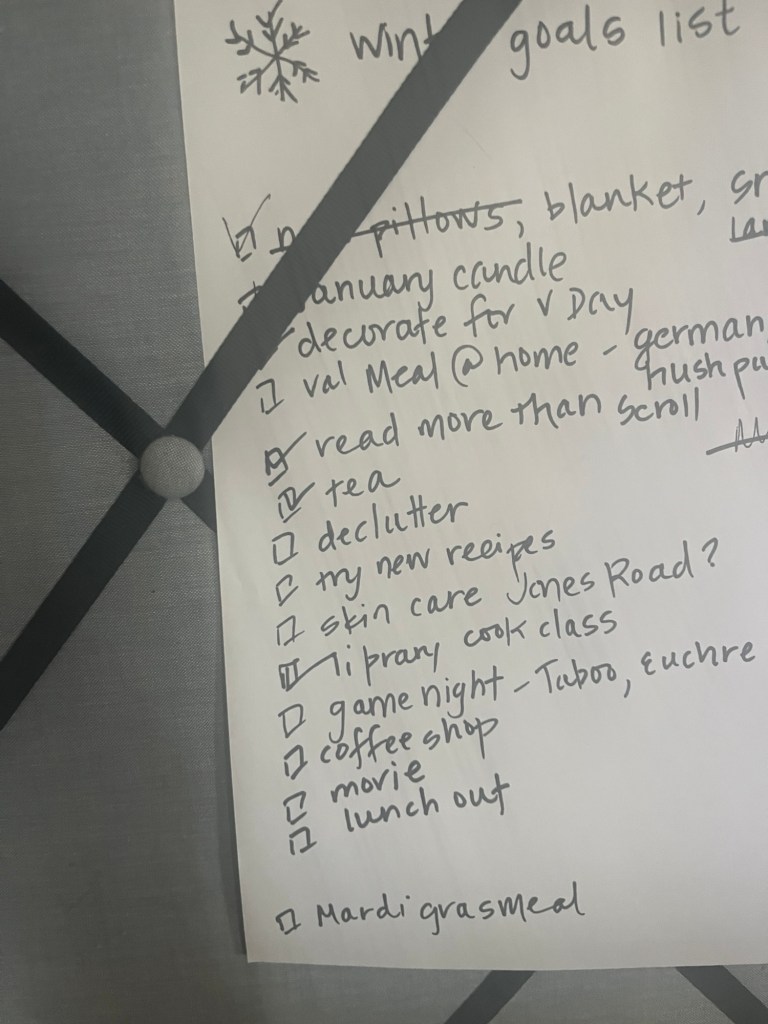 goals list
pillows, blanket,
January candle
decorate for V Day
val Meal @ home - german,
hush pu
read more than scroll
tea
declutter
try new recipes
skin care Jones Road?
library cook class
game night - Taboo, Euchre
coffee shop
movie
lunch out
Mardi gras meal